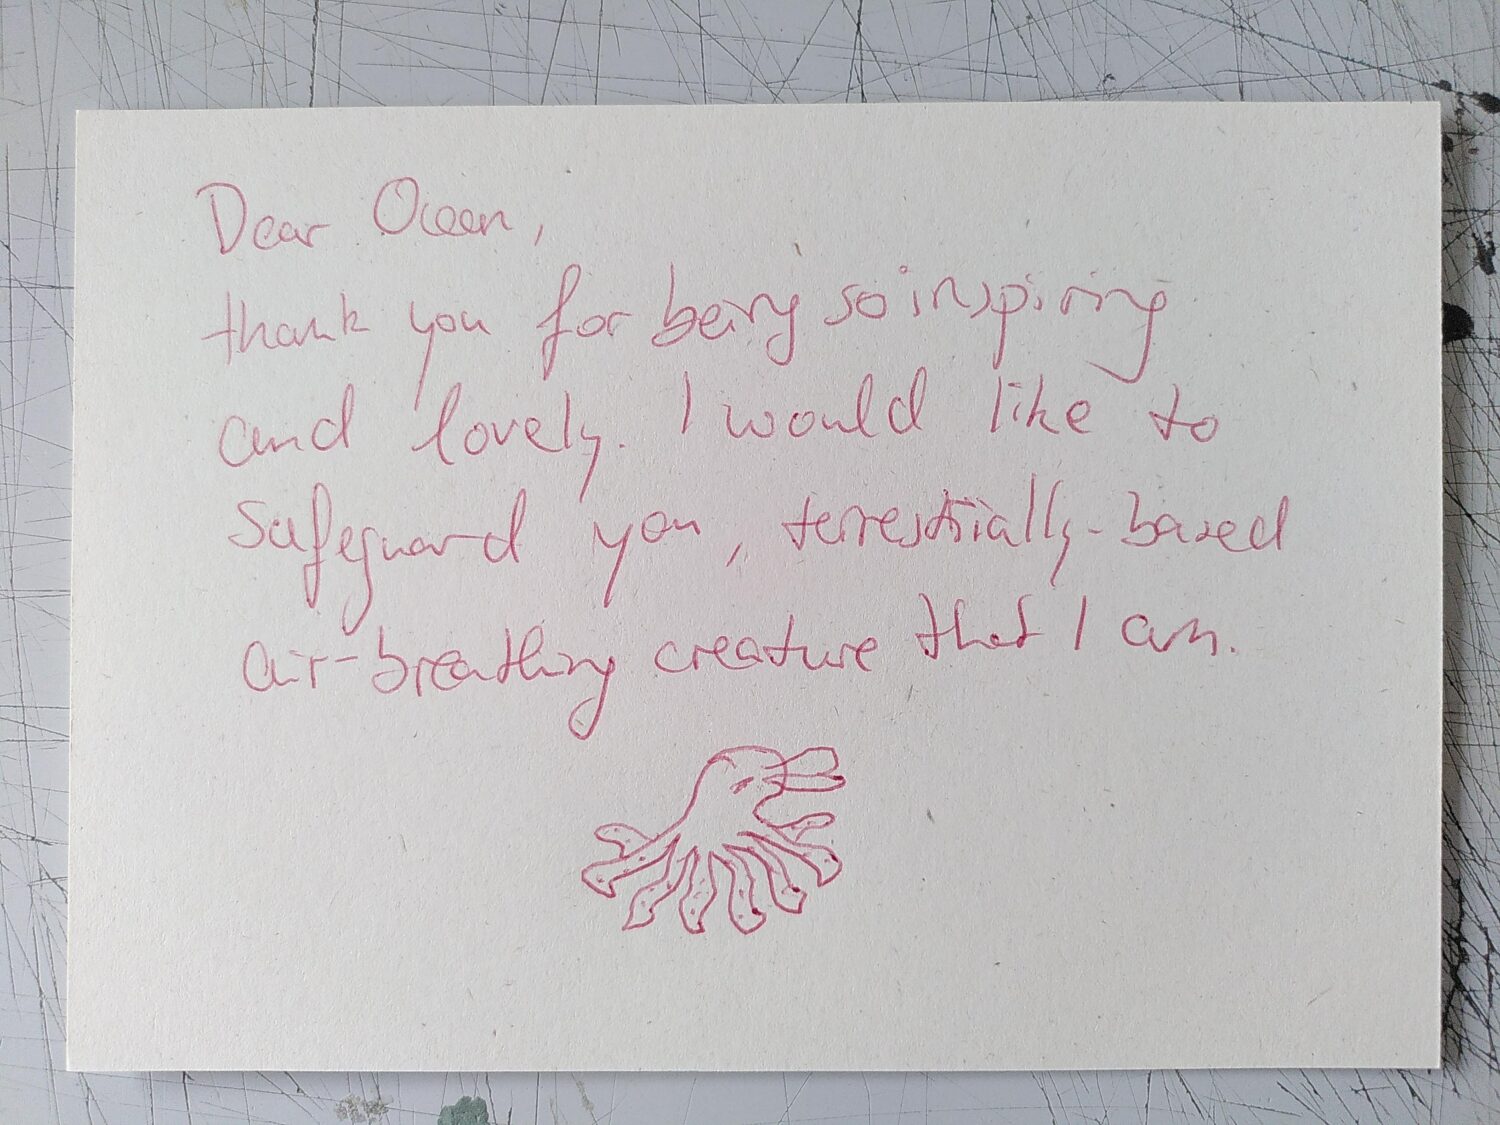 Dear Ocean,
thank you for being so inspiring
and lovely. I would like to
safeguard you, terrestrially-based
air-breathing creature that I am.